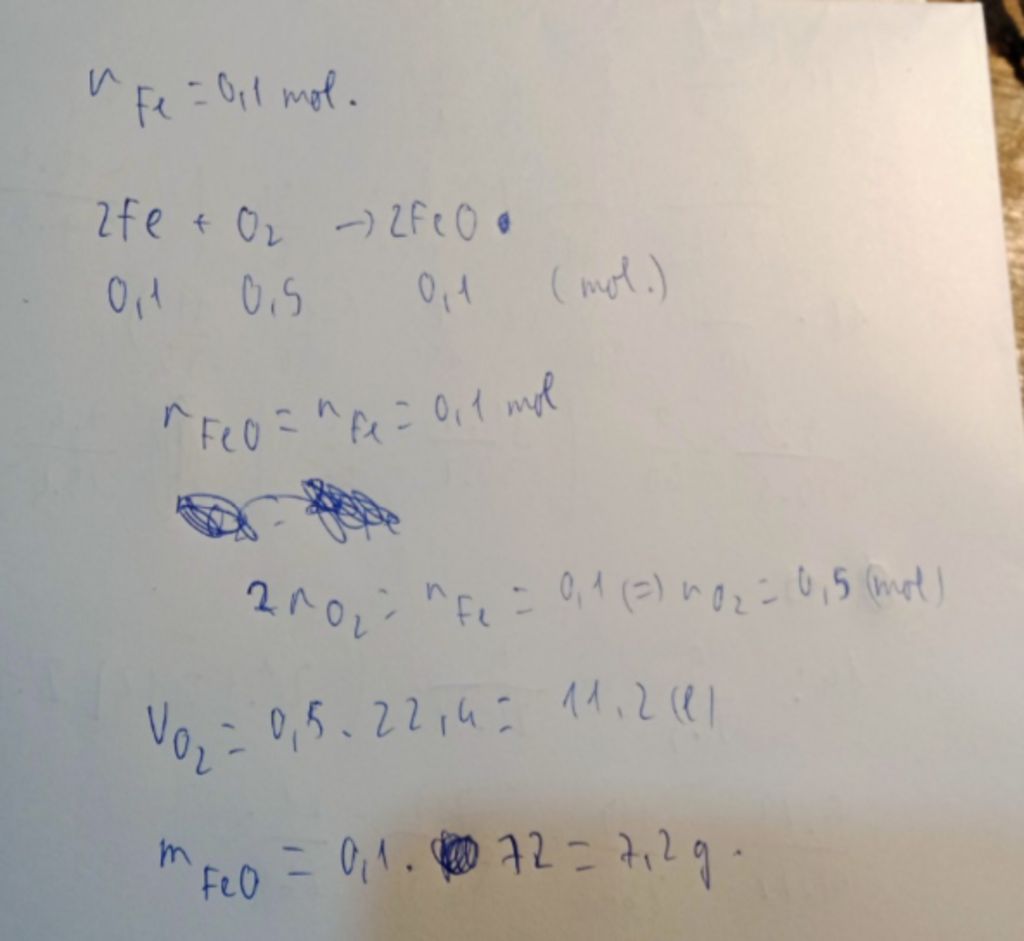 n Fe = 0,1 mol.
2Fe + O2 → 2FeO
0,1 0,5 0,1 (mol.)
n FeO = n Fe = 0,1 mol
2 n O2 = n Fe = 0,1 (=) n O2 = 0,5 (mol)
V O2 = 0,5 . 22,4 = 11.2 (l)
m FeO = 0,1 . 72 = 7,2 g.